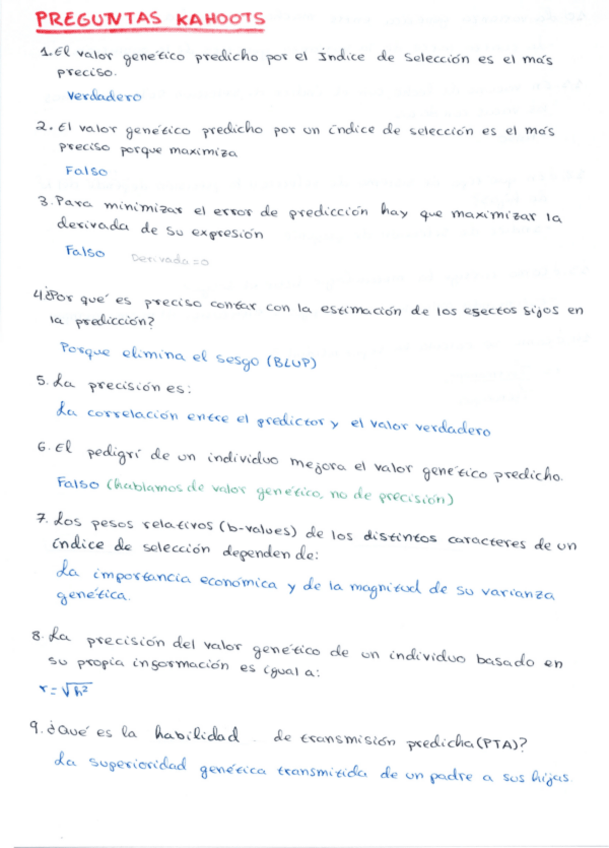 PREGUNTAS KAHOOTS
1. El valor genético predicho por el índice de selección es el más
preciso.
Verdadero
2. El valor genético predicho por un índice de selección es el más
preciso porque maximiza
Falso
3. Para minimizar el error de predicción hay que maximizar la
derivada de su expresión
Falso Derivada = 0
4. ¿Por qué es preciso contar con la estimación de los efectos fijos en
la predicción?
Porque elimina el sesgo (BLUP)
5. La precisión es:
La correlación entre el predictor y el valor verdadero
6. El pedigrí de un individuo mejora el valor genético predicho.
Falso (hablamos de valor genético, no de precisión)
7. Los pesos relativos (b-values) de los distintos caracteres de un
índice de selección dependen de:
La importancia económica y de la magnitud de su varianza
genética.
8. La precisión del valor genético de un individuo basado en
su propia información es igual a:
r = √h²
9. ¿Qué es la habilidad de transmisión predicha (PTA)?
La superioridad genética transmitida de un padre a sus hijas.